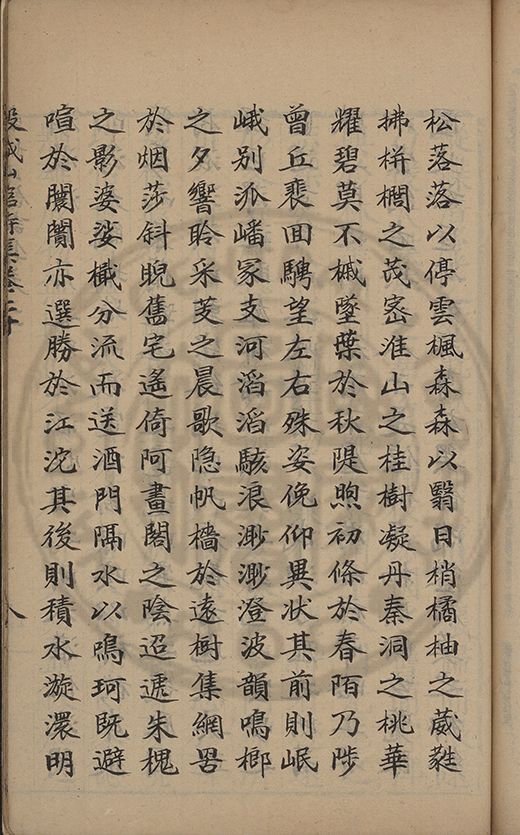 松落落以停雲楓森森以翳日梢橘柚之葳蕤
拂栟櫚之茂宻淮山之桂樹凝丹秦洞之桃華
耀碧莫不槭墜葉於秋隄煦初條於春陌乃陟
曾丘裵回騁望左右殊姿俛仰異狀其前則岷
峨別泒嶓冢支河滔滔駭浪渺渺澄波韻鳴榔
之夕響聆采芰之晨歌隐帆檣於遠樹集網罟
於烟莎斜睨舊宅遙倚阿畫閣之陰迢遞朱槐
之影婆娑檝分流而送酒門隔水以鳴珂既避
喧於闤闠亦選勝於江沱其後則積水漩澴明
城山館詩集卷 八